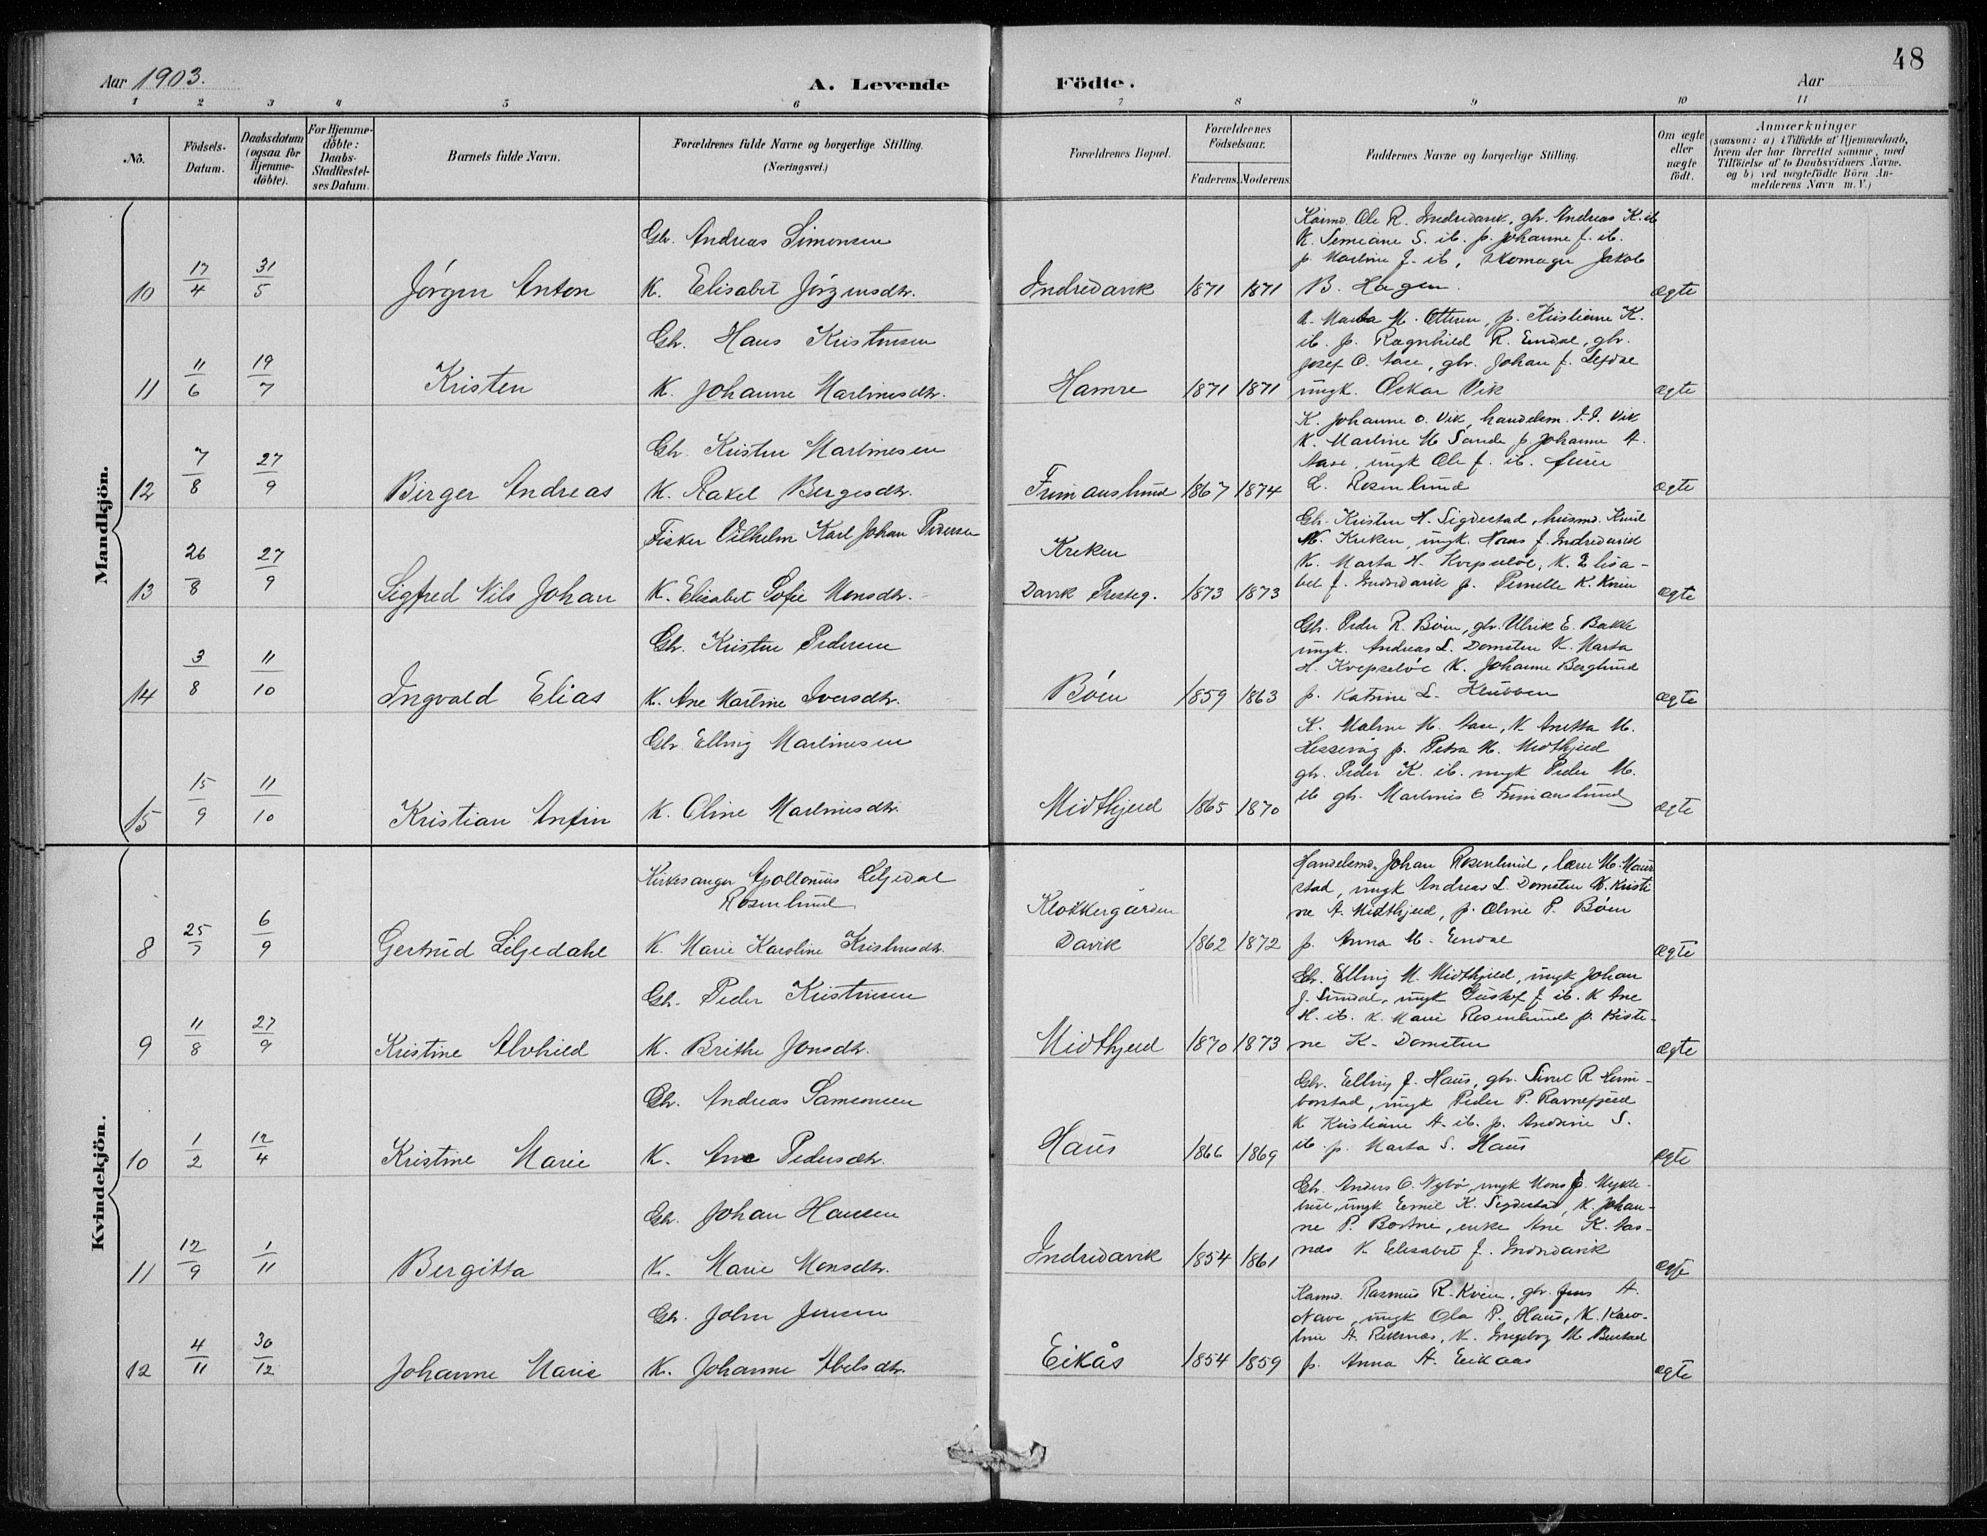 48
Aar 1903.
A. Levende Födte.
Aar
1 2 3 4 5 6 7 8 9 10 11
No.
Födsels-Datum.
Daabsdatum (ogsaa for Hjemmedöbte).
For Hjemmedöbte: Daabs-Stadfæstelses Datum.
Barnets fulde Navn.
Forældrenes fulde Navne og borgerlige Stilling.
(Næringsvei.)
Forældrenes Bopæl.
Forældrenes Födselsaar.
Faderens. Moderens.
Faddernes Navne og borgerlige Stilling.
Om ægte eller uægte födt.
Anmærkninger
(saasom: a) i Tilfælde af Hjemmedaab,
hvem der har forrettet samme, med
Tilföielse af to Daabsvidners Navne,
og b) ved uægtefödte Börn An-
melderens Navn m. V.)
Mandkjön.
Gbr. Andreas Simonsen
Kaarmd. Ole R. Indredavik, gbr. Andreas K. ib
K. Semiane S. ib. p. Johanne J. ib.
p. Martine J. ib, Skomager Jakob
10 17/4 31/5 Jörgen Anton K. Elisabet Jörgensdtr. Indredavik 1871 1871 B. Hagen. ægte
Gbr. Hans Kristensen
K. Marta M. Otteren, p. Kristiane K.
ib. p. Ragnhild R. Endal, gbr.
Josef O. Aase, gbr. Johan J. Lefdal
11 11/6 19/7 Kristen K. Johanne Martinesdtr. Hamre 1871 1871 ungk. Oskar Vik ægte
Gbr. Kristen Martinesen
K. Johanne O. Vik, handelsm. I. I. Vik
K. Martine M Sande p Johanne A.
Aase, ungk Ole J. ib.
12 7/8 27/9 Birger Andreas K. Rakel Bergesdtr. Frimanslund 1867 1874 L. Rosenlund ægte
Fisker Vilhelm Karl Johan Pedersen
Kreken
Gbr. Kristen H. Sigdestad, husmd. Knut
M. Kreken, ungk. Hans J. Indredavik
K. Marta H. Kvepseløe, K. Elisa-
13 26/8 27/9 Sigfred Nils Johan K. Elisabet Sofie Monsdtr. Davik Presteg. 1873 1873 bet J. Indredavik p. Pernelle K. ægte
Gbr. Kristen Pedersen
Gbr. Peder R. Böen, gbr. Ulrik E. Bakke
ungk. Andreas L. Domsten K. Marta
H. Kvepseløe K. Johanne Berglund
14 3/8 11/10 Ingvald Elias K. Ane Martine Iversdtr. Böen 1859 1863 p. Katrine L. Klubben ægte
Gbr Elling Martinesen
K. Malene K. Aase, K Anetta M.
Hessevåg p. Petra M. Midthjeld
gbr. Peder K. ib. ungk Peder M.
15 15/9 11/10 Kristian Anfin K. Oline Martinesdtr. Midthjeld 1865 1870 ib gbr. Martinus O Frimanslund ægte
Kvindekjön.
Kirkesanger Apollonius Liljedal
Rosenlund
Klokkergården
Handelsmd. Johan Rosenlund, lærer M. Maur-
stad, ungk Andreas L. Domsten K. Kristi-
ne A. Midthjeld, p. Oline P. Böen
8 25/7 6/9 Gertrud Liljedahl K. Marie Karoline Kristensdtr. Davik 1862 1872 p. Anna M. Endal ægte
Gbr. Peder Kristensen
Gbr. Elling M. Midthjeld, ungk Johan
J. Sundal, ungk Gustaf J ib. K Ane
H. ib. K. Marie Rosenlund p. Kristi-
9 11/8 27/9 Kristine Alvhild K. Brithe Jonsdtr. Midthjeld 1870 1873 ne K. Domsten ægte
Gbr. Andreas Samsonsen
Gbr. Elling J. Haus, gbr. Sivert R Hum-
borstad, ungk Peder P. Ravnefjeld
K Kristiane A. ib. p. Andrine S.
10 1/2 12/4 Kristine Marie K. Ane Pedersdtr. Haus 1866 1869 ib. p. Marta S. Haus ægte
Gbr. Johan Hansen
Gbr. Anders O. Nybö, ungk Mons P. Mykle-
bust, ungk Emil K. Sigdestad, K. Johan-
ne P. Bortne, enke Ane K. Aas-
11 12/9 1/11 Bergitta K. Marie Monsdtr. Indredavik 1854 1861 næs K. Elisabet J. Indredavik ægte
Gbr. John Jensen
Kaarmd. Rasmus R. Kvien, gbr. Jens A.
Nave, ungk Ola P. Haus, K. Karo-
line A. Reksnæs, K. Ingeborg M
12 4/11 30/12 Johanne Marie K. Johanne Abelsdtr. Eikås 1854 1859 p. Anna A. Eikaas ægte